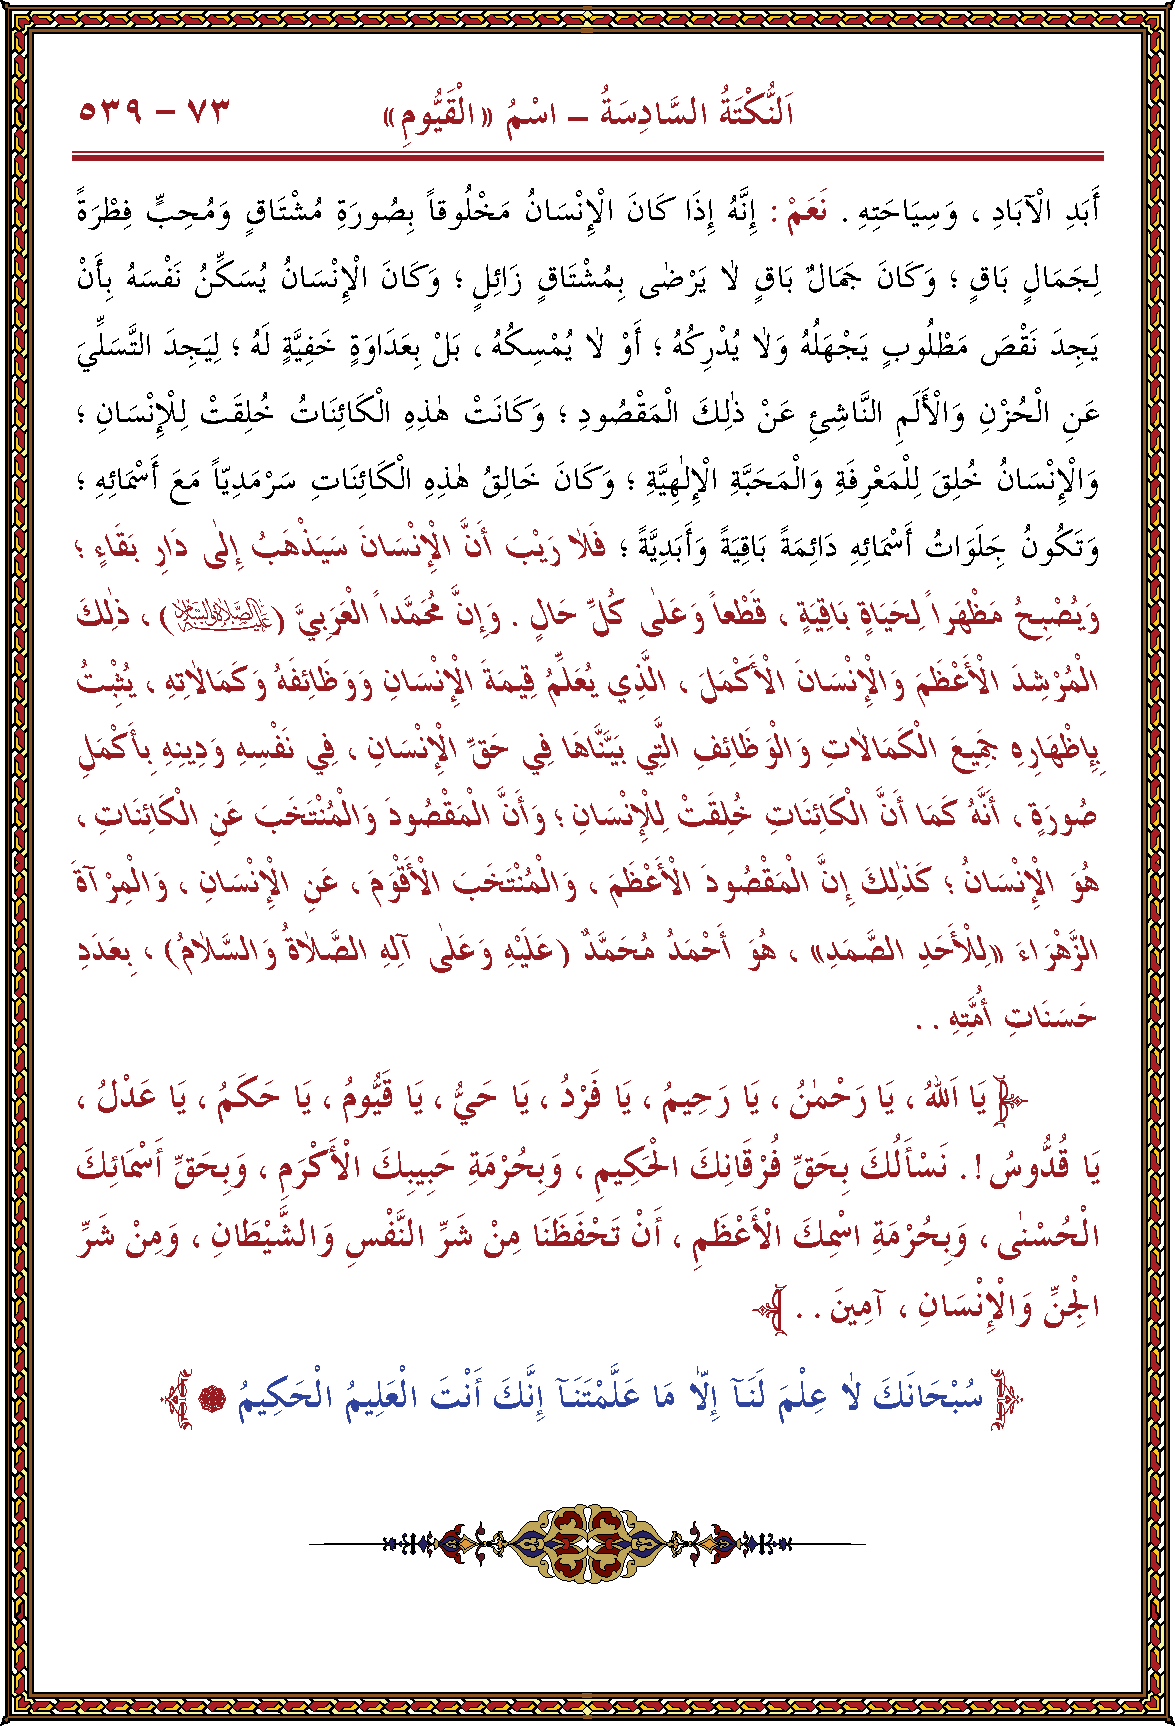 اَلنُّكْتَةُ السَّادِسَةُ – اسْمُ «الْقَيُّومِ» ٧٣ – ٥٣٩
أَبَدِ الْآبَادِ ، وَسِيَاحَتِهِ . نَعَمْ : إِنَّهُ إِذَا كَانَ الْإِنْسَانُ مَخْلُوقاً بِصُورَةِ مُشْتَاقٍ وَمُحِبٍّ فِطْرَةً
لِجَمَالٍ بَاقٍ ؛ وَكَانَ جَمَالٌ بَاقٍ لَا يَرْضٰى بِمُشْتَاقٍ زَائِلٍ ؛ وَكَانَ الْاِنْسَانُ يُسَكِّنُ نَفْسَهُ بِأَنْ
يَجِدَ نَقْصَ مَطْلُوبٍ يَجْهَلُهُ وَلَا يُدْرِكُهُ ؛ أَوْ لَا يُمْسِكُهُ ، بَلْ بِعَدَاوَةٍ خَفِيَّةٍ لَهُ ؛ لِيَجِدَ التَّسَلِّيَ
عَنِ الْحُزْنِ وَالْأَلَمِ النَّاشِئِ عَنْ ذٰلِكَ الْمَقْصُودِ ؛ وَكَانَتْ هٰذِهِ الْكَائِنَاتُ خُلِقَتْ لِلْإِنْسَانِ ؛
وَالْاِنْسَانُ خُلِقَ لِلْمَعْرِفَةِ وَالْمَحَبَّةِ الْإِلٰهِيَّةِ ؛ وَكَانَ خَالِقُ هٰذِهِ الْكَائِنَاتِ سَرْمَدِيّاً مَعَ أَسْمَائِهِ ؛
وَتَكُونُ جَلَوَاتُ أَسْمَائِهِ دَائِمَةً بَاقِيَةً وَأَبَدِيَّةً ؛ فَلَا رَيْبَ أَنَّ الْإِنْسَانَ سَيَذْهَبُ إِلٰى دَارِ بَقَاءٍ ؛
وَيُصْبِحُ مَظْهَراً لِحَيَاةٍ بَاقِيَةٍ ، قَطْعاً وَعَلٰى كُلِّ حَالٍ . وَإِنَّ مُحَمَّداً الْعَرَبِيَّ (عَلَيْهِ الصَّلَاةُ وَالسَّلَامُ) ، ذٰلِكَ
الْمُرْشِدَ الْأَعْظَمَ وَالْإِنْسَانَ الْأَكْمَلَ ، الَّذِي يُعَلِّمُ قِيمَةَ الْإِنْسَانِ وَوَظَائِفَهُ وَكَمَالَاتِهِ ، يُثْبِتُ
بِإِظْهَارِهِ جَمِيعَ الْكَمَالَاتِ وَالْوَظَائِفِ الَّتِي بَيَّنَّاهَا فِي حَقِّ الْإِنْسَانِ ، فِي نَفْسِهِ وَدِينِهِ بِأَكْمَلِ
صُورَةٍ ، أَنَّهُ كَمَا أَنَّ الْكَائِنَاتِ خُلِقَتْ لِلْإِنْسَانِ ؛ وَأَنَّ الْمَقْصُودَ وَالْمُنْتَخَبَ عَنِ الْكَائِنَاتِ ،
هُوَ الْإِنْسَانُ ؛ كَذٰلِكَ إِنَّ الْمَقْصُودَ الْأَعْظَمَ ، وَالْمُنْتَخَبَ الْأَقْوَمَ ، عَنِ الْإِنْسَانِ ، وَالْمِرْآةَ
الزَّهْرَاءَ «لِلْأَحَدِ الصَّمَدِ» ، هُوَ أَحْمَدُ مُحَمَّدٌ (عَلَيْهِ وَعَلٰى آلِهِ الصَّلَاةُ وَالسَّلَامُ) ، بِعَدَدِ
حَسَنَاتِ أُمَّتِهِ . .
﴿يَا اَللّٰهُ ، يَا رَحْمٰنُ ، يَا رَحِيمُ ، يَا فَرْدُ ، يَا حَيُّ ، يَا قَيُّومُ ، يَا حَكَمُ ، يَا عَدْلُ ،
يَا قُدُّوسُ !. نَسْأَلُكَ بِحَقِّ فُرْقَانِكَ الْحَكِيمِ ، وَبِحُرْمَةِ حَبِيبِكَ الْأَكْرَمِ ، وَبِحَقِّ أَسْمَائِكَ
الْحُسْنٰى ، وَبِحُرْمَةِ اسْمِكَ الْأَعْظَمِ ، أَنْ تَحْفَظَنَا مِنْ شَرِّ النَّفْسِ وَالشَّيْطَانِ ، وَمِنْ شَرِّ
الْجِنِّ وَالْإِنْسَانِ ، آمِينَ . .﴾
﴿سُبْحَانَكَ لَا عِلْمَ لَنَآ إِلَّا مَا عَلَّمْتَنَآ إِنَّكَ أَنْتَ الْعَلِيمُ الْحَكِيمُ﴾